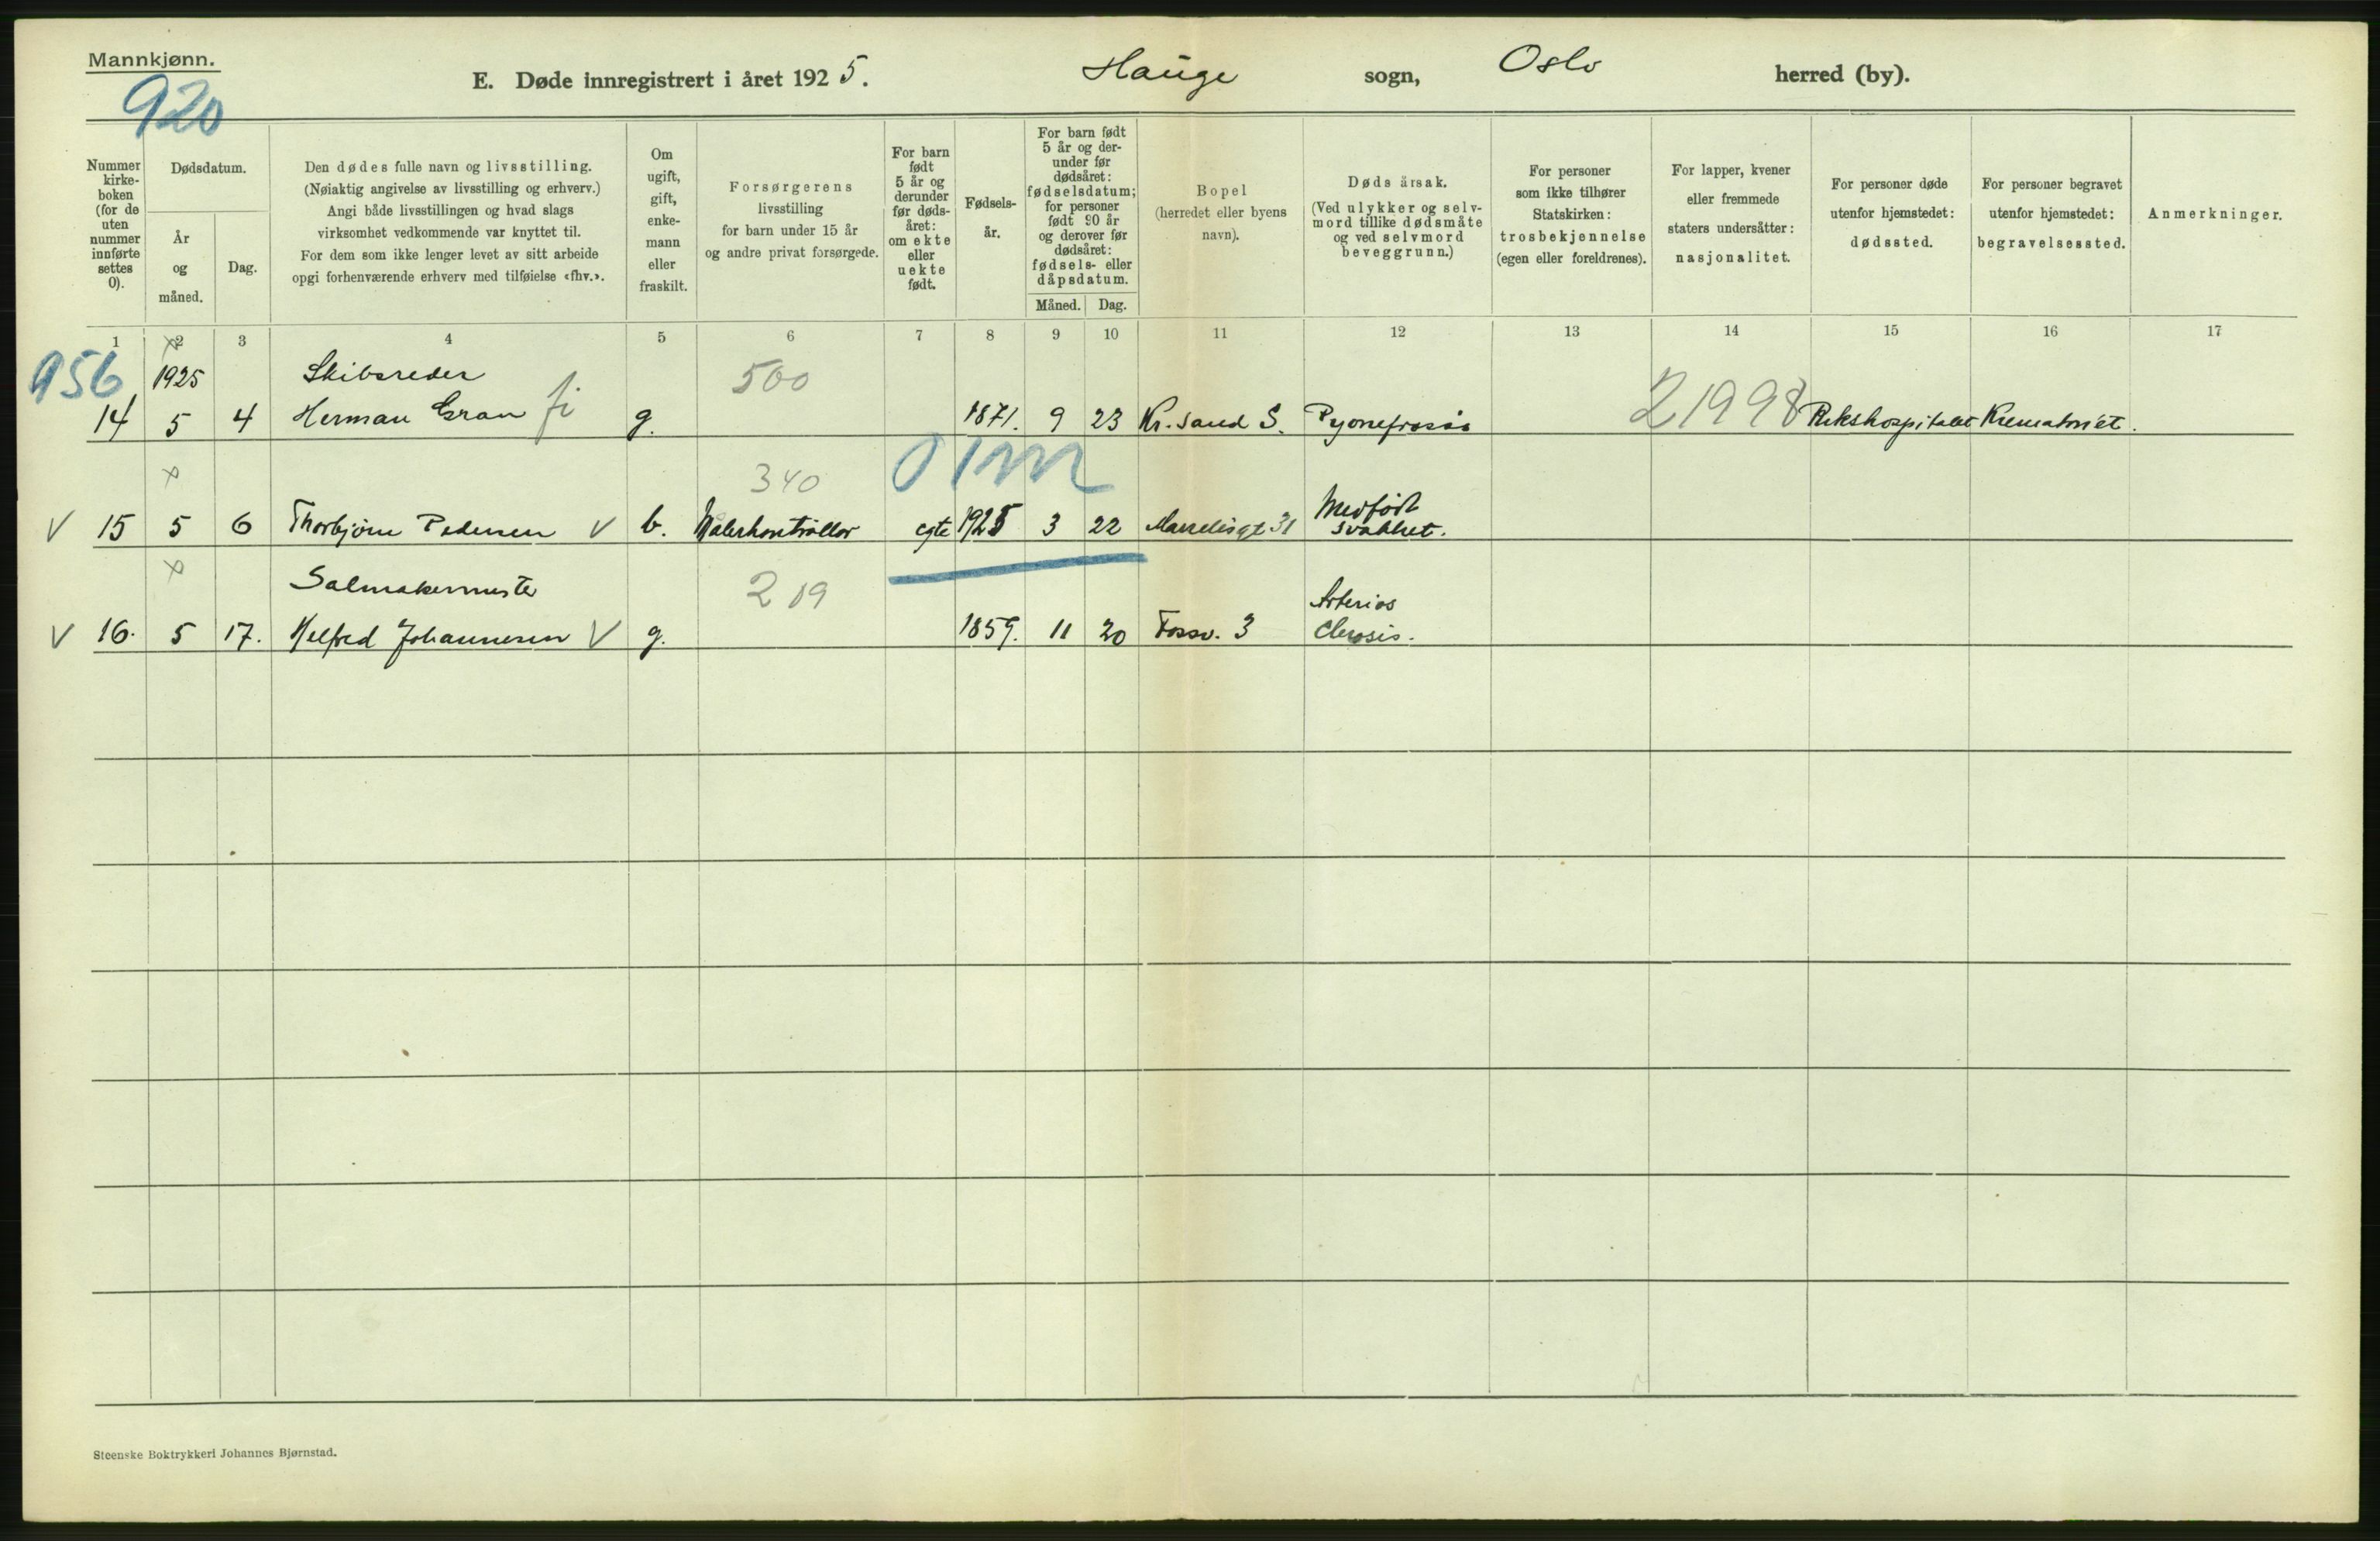 Mannkjønn.
920
E. Døde innregistrert i året 1925. Hauge sogn, Oslo herred (by).
Nummer kirke- boken (for de uten nummer innførte settes 0).
Dødsdatum.
År og måned.
Dag.
Den dødes fulle navn og livsstilling.
(Nøiaktig angivelse av livsstilling og erhverv.)
Angi både livsstillingen og hvad slags
virksomhet vedkommende var knyttet til.
For dem som ikke lenger levet av sitt arbeide
opgi forhenværende erhverv med tilføielse «fhv.».
Om
ugift,
gift,
enke-
mann
eller
fraskilt.
Forsørgerens
livsstilling
for barn under 15 år
og andre privat forsørgede.
For barn
født
5 år og
derunder
før døds-
året:
om ekte
eller
uekte
født.
Fødsels-
år.
For barn født
5 år og der-
under før
dødsåret:
fødselsdatum;
for personer
født 90 år
og derover før
dødsåret:
fødsels- eller
dåpsdatum.
Måned. Dag.
Bopel
(herredet eller byens
navn).
Dødsårsak.
(Ved ulykker og selv-
mord tillike dødsmåte
og ved selvmord
beveggrunn.)
For personer
som ikke tilhører
Statskirken:
trosbekjennelse
(egen eller foreldrenes).
For lapper, kvener
eller fremmede
staters undersåtter:
nasjonalitet.
For personer døde
utenfor hjemstedet:
dødssted.
For personer begravet
utenfor hjemstedet:
begravelsessted.
Anmerkninger.
1 2 3 4 5 6 7 8 9 10 11 12 13 14 15 16 17
956 1925 Skibsreder 500
14 5 4 Herman Gran fi g. 1871. 9 23 Kr. sand S. Pyonefrosis 21998 Rikshospitalet Krematoriet.
x 340 01m
V 15 5 6 Thorbjørn Pedersen V b. Målerkontrollør egte 1925 3 22 31 Medfødt
svakhet.
x Salmakermester 219 Arterios
V 16. 5 17. Helfred Johannesen V g. 1859. 11 20 Fossv. 3 clerosis.
Steenske Boktrykkeri Johannes Bjørnstad.